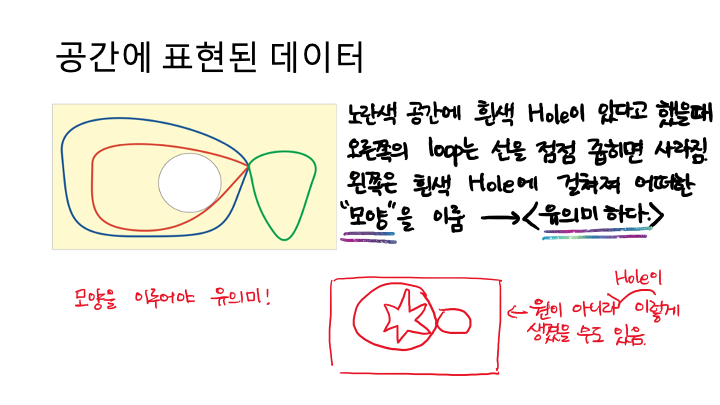 공간에 표현된 데이터
노란색 공간에 흰색 Hole이 있다고 했을때
오른쪽의 loop는 선을 점점 좁히면 사라짐.
왼쪽은 흰색 Hole에 걸쳐져 어떠한
"모양"을 이룸 → <유의미 하다.>
모양을 이루어야 유의미!
Hole이
← 원이 아니라 이렇게
생겼을 수도 있음.